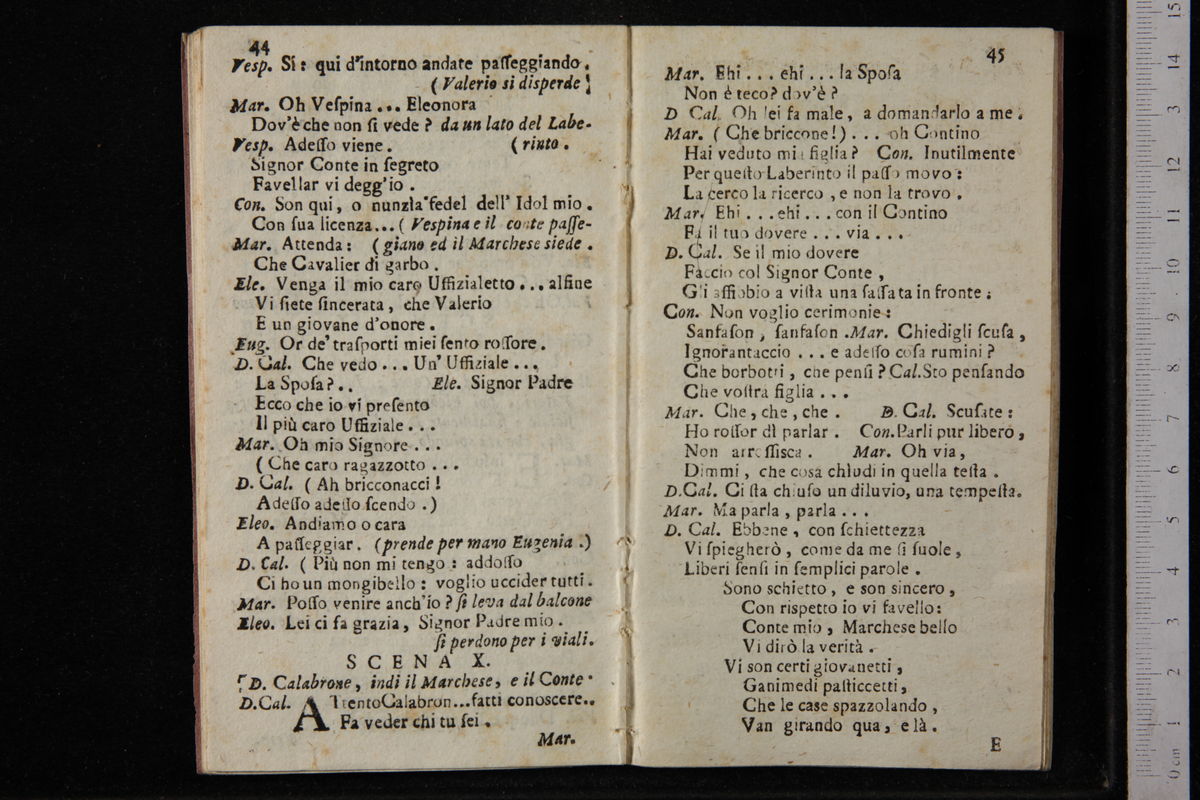 44
Vesp. Sì: qui d'intorno andate passeggiando.
(Valerio si disperde)
Mar. Oh Vespina... Eleonora
Dov'è che non si vede? da un lato del Labe-
Vesp. Adesso viene. (rinto.
Signor Conte in segreto
Favellar vi degg'io.
Con. Son qui, o nunzia fedel dell' Idol mio.
Con sua licenza...(Vespina e il conte passe-
Mar. Attenda: (giano ed il Marchese siede.
Che Cavalier di garbo.
Ele. Venga il mio caro Uffizialetto... alfine
Vi siete sincerata, che Valerio
E un giovane d'onore.
Eug. Or de' trasporti miei sento rossore.
D. Cal. Che vedo... Un' Uffiziale...
La Sposa?.. Ele. Signor Padre
Ecco che io vi presento
Il più caro Uffiziale...
Mar. Oh mio Signore...
(Che caro ragazzotto...
D. Cal. (Ah bricconacci!
Adesso adesso scendo.)
Eleo. Andiamo o cara
A passeggiar. (prende per mano Eugenia.)
D. Cal. (Più non mi tengo: addosso
Ci ho un mongibello: voglio uccider tutti.
Mar. Posso venire anch'io? si leva dal balcone
Eleo. Lei ci fa grazia, Signor Padre mio.
si perdono per i viali.
SCENA X.
D. Calabrone, indi il Marchese, e il Conte.
D.Cal. ATtento Calabron...fatti conoscere..
Fa veder chi tu sei.
Mar.
45
Mar. Ehi... ehi... la Sposa
Non è teco? dov'è?
D Cal. Oh lei fa male, a domandarlo a me.
Mar. (Che briccone!)... oh Contino
Hai veduto mia figlia? Con. Inutilmente
Per questo Laberinto il passo movo:
La cerco la ricerco, e non la trovo.
Mar. Ehi...ehi... con il Contino
Fa il tuo dovere... via...
D. Cal. Se il mio dovere
Faccio col Signor Conte,
Gli affibbio a vista una sassata in fronte.
Con. Non voglio cerimonie:
Sanfason, sanfason. Mar. Chiedigli scusa,
Ignorantaccio... e adesso cosa rumini?
Che borbotti, che pensi? Cal. Sto pensando
Che vostra figlia...
Mar. Che, che, che. D. Cal. Scusate:
Ho rossor di parlar. Con. Parli pur libero,
Non arrossisca. Mar. Oh via,
Dimmi, che cosa chiudi in quella testa.
D.Cal. Ci sta chiuso un diluvio, una tempesta.
Mar. Ma parla, parla...
D. Cal. Ebbene, con schiettezza
Vi spiegherò, come da me si suole,
Liberi sensi in semplici parole.
Sono schietto, e son sincero,
Con rispetto io vi favello:
Conte mio, Marchese bello
Vi dirò la verità.
Vi son certi giovanetti,
Ganimedi pasticcetti,
Che le case spazzolando,
Van girando qua, e là.
E
0 cm 1 2 3 4 5 6 7 8 9 10 11 12 13 14 15